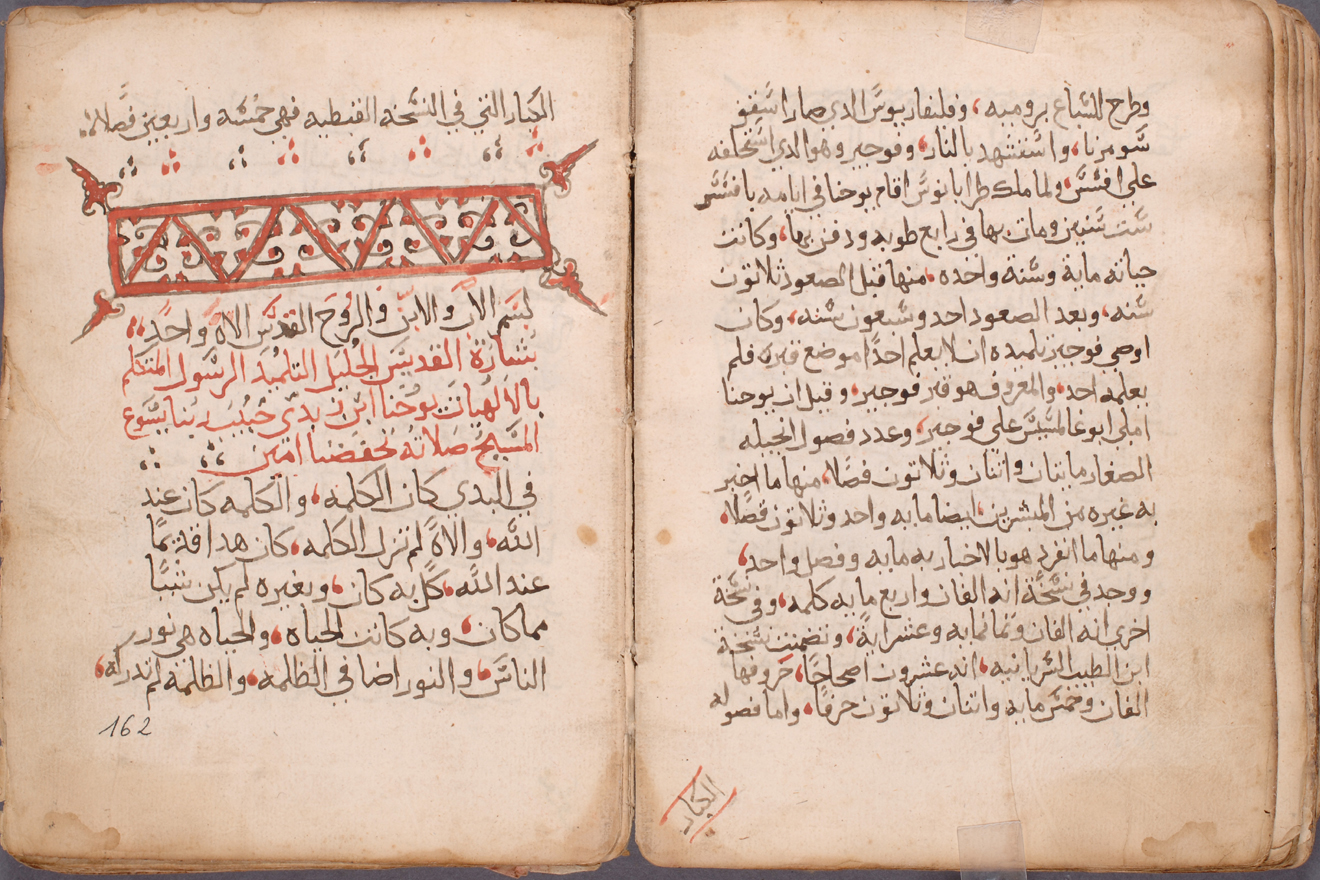 وطرح للسباع برومية، وفلنفاريوس الدي صار اسقفو
سويرنا، واستشهد بالنار، وفوجير وهو الدي استخلفه
على افسس، ولما ملك طرايانوس اقام يوحنا في ايامه بافسس
ست سنين ومات بها في رابع طوبه ودفن بها، وكانت
حياته مايه وسنة واحده، منها قبل الصعود ثلاثون
سنه، وبعد الصعود احد وسبعون سنه، وكان
اوصي فوجير تلميده ان لا يعلم احدًا موضع قبره فلم
يعلمه احد، والمعروف هو قبر فوجير، وقيل ان يوحنا
املى ابوغالمسيس على فوجير، وعدد فصول انجيله
الصغار مايتان واتنان وثلاثون فصلا، منها ما اخبر
به غيره من المبشرين ايضا مايه واحد وثلاثون فصلا،
ومنها ما انفرد هو بالاخبار به مايه وفصل واحد،
ووجد في نسخة انه الفان واربع مايه كلمه، وفي نسخة
اخرى انه الفان وثمانمايه وعشر اية، وتضمنت نسخة
ابن الطيب السريانيه، انه عشرون اصحاحًا، حروفها
الفان وخمس مايه واتنان وثلاثون حرفًا، واما فصوله
الكبار
الكبار التي في النسخه القبطيه فهي خمسه واربعين فصلا
بسم الاب والابن والروح القدس الاه واحد
بشارة القديس الجليل التلميد الرسول المتكلم
بالالهيات يوحنا ابن زبدى حبيب ربنا يسوع
المسيح صلاته تحفضنا امين
في البدى كان الكلمه، والكلمه كان عند
الله، والاه لم تزل الكلمه، كان هدا قديمًا
عند الله، كل به كان، وبغيره لم يكن شيًا
مما كان، وبه كانت الحياه، والحياه هي نور
الناس، والنور اضا في الظلمه، والظلمة لم تدركه،
162